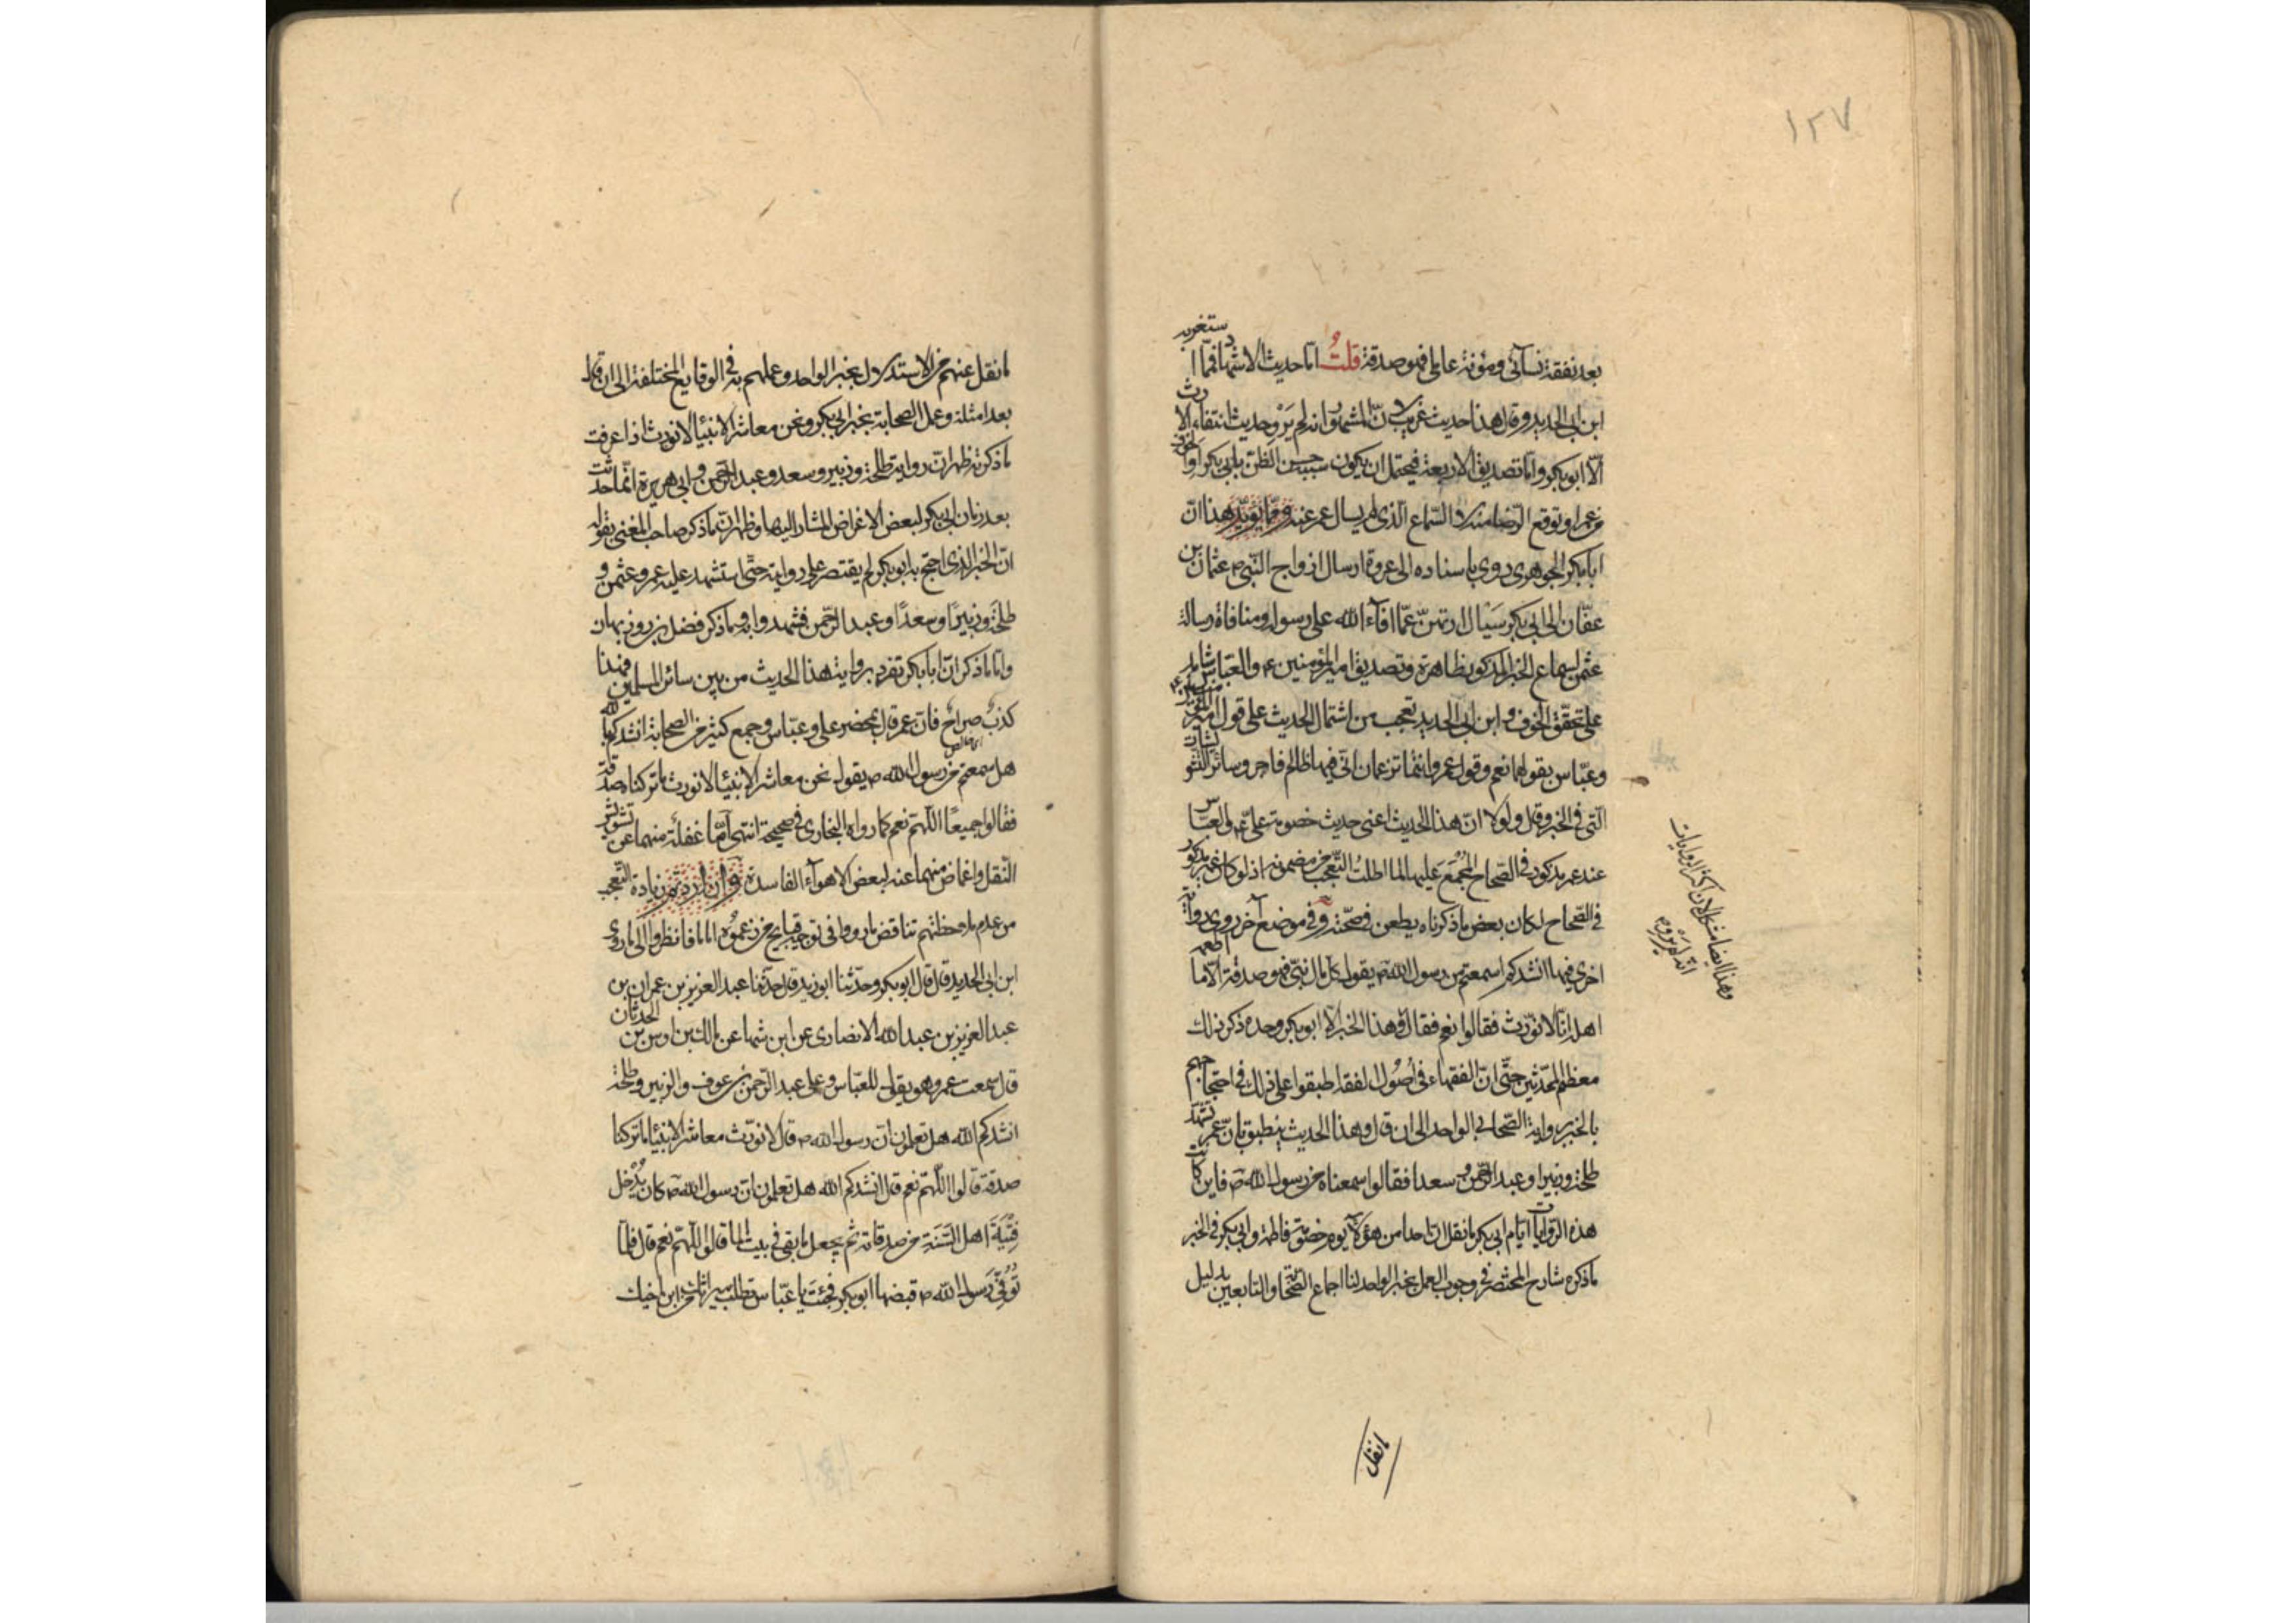 ١٢٧
بعد نفقة نسآئى ومؤنة عاملى فهو صدقة قلتُ امّا حديث الاستشهاد فمّا استغربه
ابن ابى الحديد وقال هذا حديث غريب لانّ المشهور انه لم يَرْوِ حديث انتفاء الارث
الّا ابو بكر وامّا تصديق الاربعة فيحتمل ان يكون سببه حسن الظنّ بابى بكر او الخوف
من عمر او توقع الرضا منه لا السّماع الّذى لم يسال عمر عنه وممّا يؤيّد هذا انّ
ابا بكر الجوهرى روى باسناده الى عروة ارسال ازواج النّبى ص عثمان بن
عفّان الى ابى بكر سَيْال ارثهنّ عمّا افآء الله على رسوله ومنافاة رسالة
عثمن لسماع الخبر المذكور ظاهرة وتصديق امير المؤمنين ع والعبّاس شاهد
على تحقّق الخوف وابن ابى الحديد تعجب من اشتمال الحديث على قول امير المؤمنين ع
وعبّاس بقولهما نعم وقول عمر وانتما تزعمان انّى فيها ظالم فاجر وسائر التشويشات
الّتى فى الخبر وقال ولولا انّ هذا الحديث اعنى حديث خصومة على ع والعبّاس
عند عمر مذكور فى الصّحاح المُجْمَع عليها لما اطلت التّعجب من مضمونه اذ لو كان غير مذكور
فى الصّحاح لكان بعض ما ذكرناه يطعن فى صحّته وفى موضع آخر روى رواية
اخرى فيها انشدكم اسمعتم من رسول الله ص يقول كل مال نبىّ فهو صدقة الّا ما اطعمه
اهله انّا لا نورّث فقالوا نعم فقال وهذا الخبر الا ابو بكر وحده ذكر ذلك
معظم المحدّثين حتّى انّ الفقهاء فى اُصُول الفقه اطبقوا على ذلك فى احتجاجهم
بالخبر برواية الصّحابى الواحد الى ان قال وهذا الحديث ينطبق بانّ عمر استشهد
طلحة وزبيرا وعبد الرّحمن وسعدا فقالوا سمعناه من رسول الله ص فاين كانت
هذه الرّوايات ايّام ابى بكر ما نقل ان احدا من هؤلاء يوم خصومة فاطمة وابى بكر فى الخبر
ما ذكره شارح المختصر فى وجوب العمل بخبر الواحد لنا اجماع الصّحابة والتابعين بدليل
ما نقل
وهذا ايضا مشكل لان اكثر الروايات
انّه لم يروه
ما نقل عنهم من الاستدلال بخبر الواحد وعملهم به فى الوقايع المختلفة الى ان قال
بعد امثلة وعمل الصحابة بخبر ابى بكر ونحن معاشر الانبيآء لا نورث اذا عرفت
ما ذكرته ظهر انّ رواية طلحة وزبير وسعد وعبد الرّحمن وابى هريرة انّما حدثت
بعد زمان ابى بكر لبعض الاغراض المشار اليها وظهر انّ ما ذكر صاحب المغنى بقوله
انّ الخبر الّذى احتج به ابو بكر لم يقتصر على روايته حتّى استشهد عليه عمر وعثمن و
طلحة وزبيرًا وسعدًا وعبد الرّحمن فشهدوا به وما ذكر فضل بن روزبهان
وامّا ما ذكر انّ ابا بكر تفرد برواية هذا الحديث من بين سائر المسلمين فهذا
كذبٌ صراحٌ فانّ عمر قال بمحضر على وعبّاس وجمع كثير من الصحابة انشدكم بالله
هل سمعتم من رسول الله ص يقول نحن معاشر الانبيآء لا نورث ما تركناه صدقة
فقالوا جميعًا اللّهمّ نعم كما رواه البخارى فى صحيحه انتهى امّا غفلة منهما عن تشويش
النّقل واغماض منهما عنه لبعض الاهوآء الفاسدة وان اردتم زيادة التّعجب
من عدم ملاحظتهم تناقض ما رووا فى توجيه قبايح من زعموه اماما فانظروا الى ما روى
ابن ابى الحديد قال قال ابو بكر وحدّثنا ابو زيد قال حدّثنا عبد العزيز بن عمران بن
عبد العزيز بن عبد الله الانصارى عن ابن شهاب عن مالك بن اوس بن الحدثان
قال سمعت عمر وهو يقول للعبّاس وعلى وعبد الرّحمن بن عوف والزبير وطلحة
انشدكم الله هل تعلمون انّ رسول الله ص قال لا نورّث معاشر الانبيآء ما تركنا
صدقة قالوا اللّهمّ نعم قال انشدكم الله هل تعلمون انّ رسول الله ص كان يُدْخل
فِتْيَة اهل السّنة من صدقاته ثم يجعل ما بقى فى بيت المال قالوا اللّهمّ نعم قال فلمّا
تُوُفّى رسول الله ص قبضها ابو بكر فجئتَ يا عبّاس تطلب ميراثك من ابن اخيك